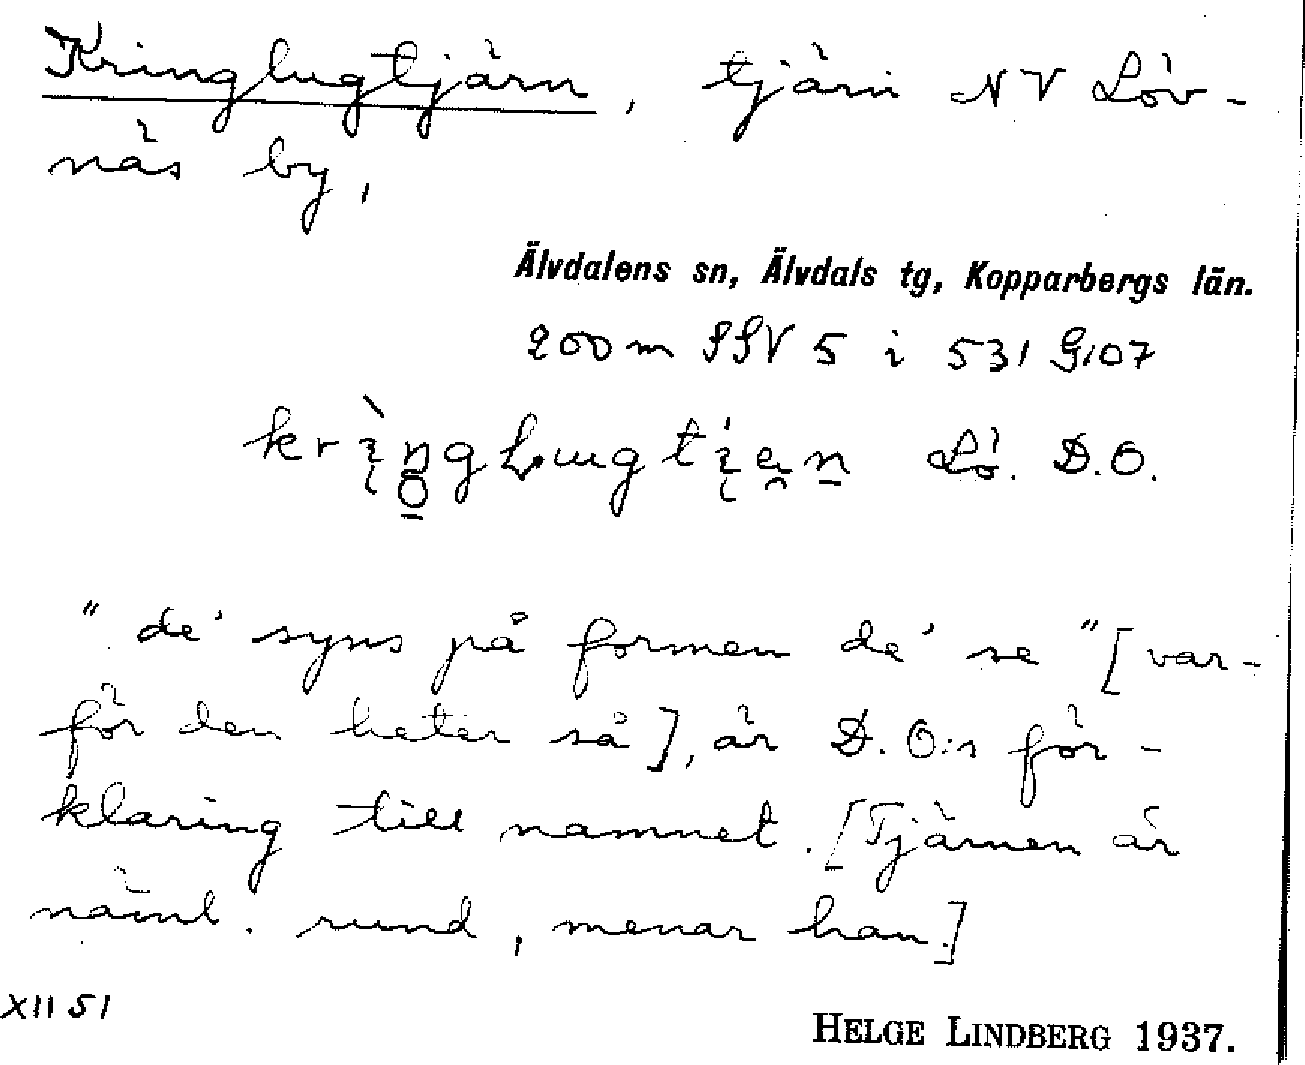 Kringlugtjärn, tjärn NV Löv-
näs by,
Älvdalens sn, Älvdals tg, Kopparbergs län.
200 m SSV 5 i 531 G107
Lö. D.O.
"de' syns på formen de' se" [var-
för den heter så], är D.O:s för-
klaring till namnet. [Tjärnen är
näml. rund, menar han.]
XII 51
HELGE LINDBERG 1937.